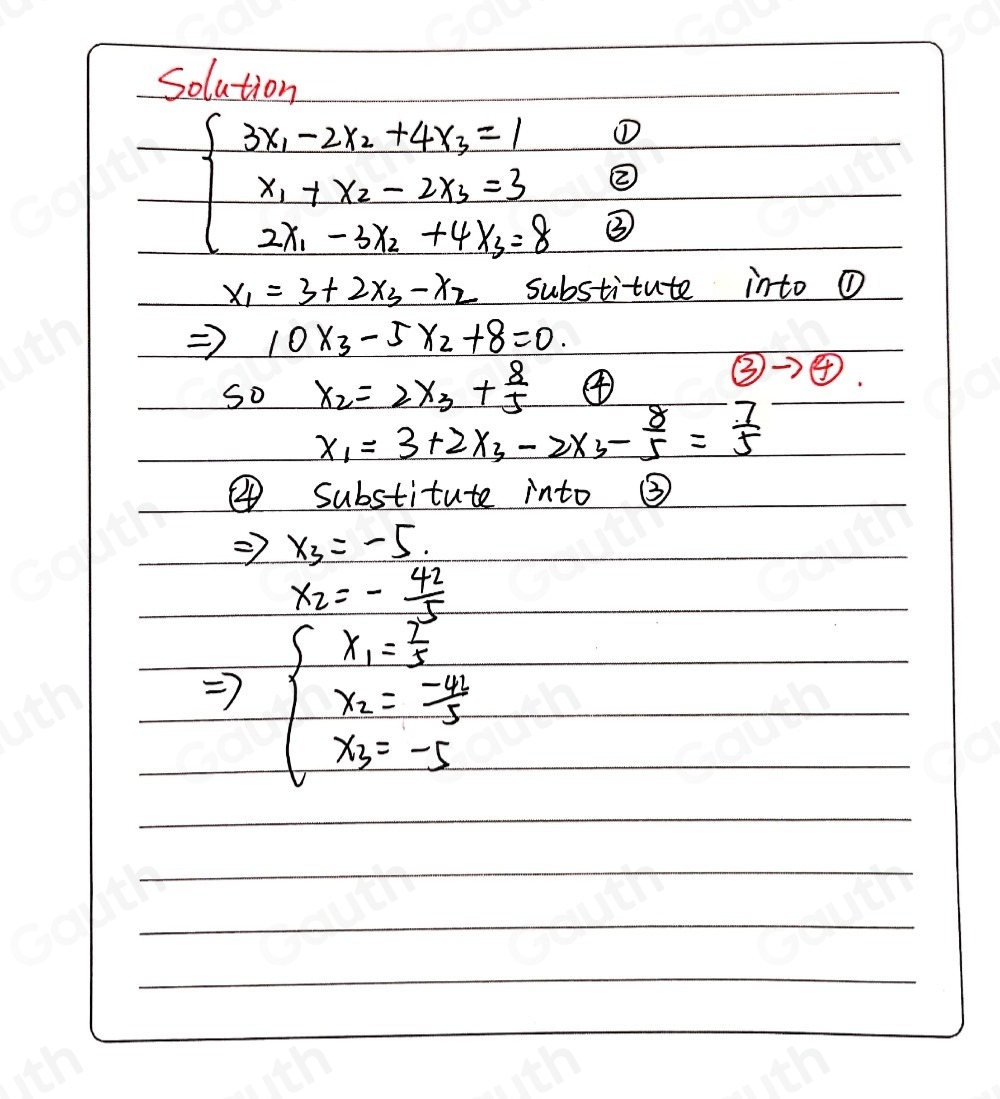 Solution
3x₁ - 2x₂ + 4x₃ = 1 ①
x₁ + x₂ - 2x₃ = 3 ②
2x₁ - 3x₂ + 4x₃ = 8 ③
x₁ = 3 + 2x₃ - x₂ substitute into ①
⇒ 10x₃ - 5x₂ + 8 = 0.
③ → ④.
so x₂ = 2x₃ + 8/5 ④
x₁ = 3 + 2x₃ - 2x₃ - 8/5 = 7/5
④ substitute into ③
⇒ x₃ = -5.
x₂ = - 42/5
⇒ x₁ = 7/5
x₂ = -42/5
x₃ = -5
Gauth